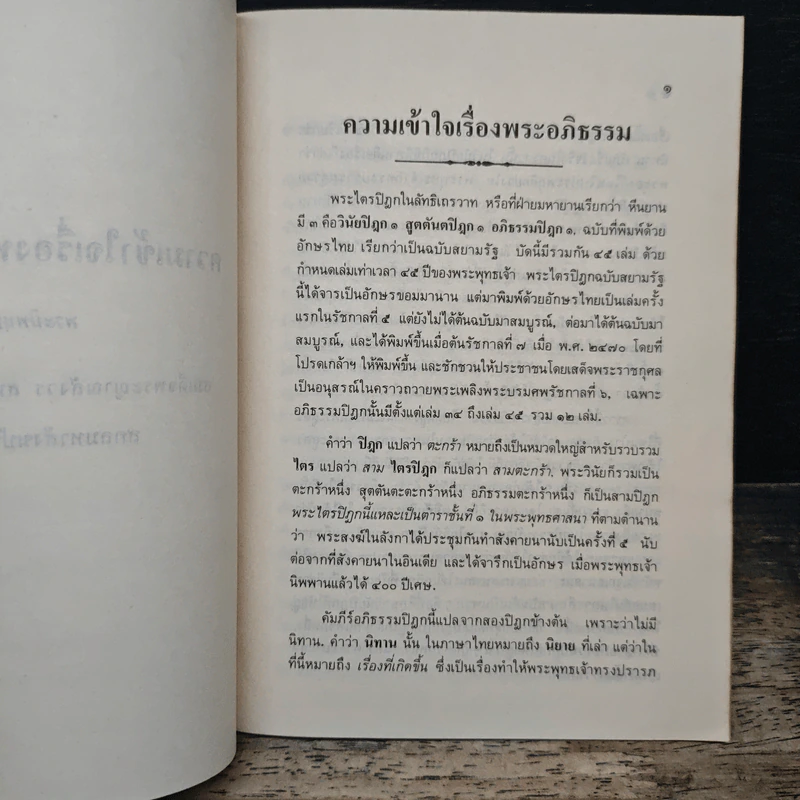 ๑
ความเข้าใจเรื่องพระอภิธรรม
พระไตรปิฎกในลัทธิเถรวาท หรือที่ฝ่ายมหายานเรียกว่า หีนยาน
มี ๓ คือวินัยปิฎก ๑ สูตตันตปิฎก ๑ อภิธรรมปิฎก ๑, ฉบับที่พิมพ์ด้วย
อักษรไทย เรียกว่าเป็นฉบับสยามรัฐ บัดนี้มีรวมกัน ๔๕ เล่ม ด้วย
กำหนดเล่มเท่าเวลา ๔๕ ปีของพระพุทธเจ้า พระไตรปิฎกฉบับสยามรัฐ
นี้ได้จารเป็นอักษรขอมมานาน แต่มาพิมพ์ด้วยอักษรไทยเป็นเล่มครั้ง
แรกในรัชกาลที่ ๕ แต่ยังไม่ได้ต้นฉบับมาสมบูรณ์, ต่อมาได้ต้นฉบับมา
สมบูรณ์, และได้พิมพ์ขึ้นเมื่อต้นรัชกาลที่ ๗ เมื่อ พ.ศ. ๒๔๗๐ โดยที่
โปรดเกล้าฯ ให้พิมพ์ขึ้น และชักชวนให้ประชาชนโดยเสด็จพระราชกุศล
เป็นอนุสรณ์ในคราวถวายพระเพลิงพระบรมศพรัชกาลที่ ๖, เฉพาะ
อภิธรรมปิฎกนั้นมีตั้งแต่เล่ม ๓๔ ถึงเล่ม ๔๕ รวม ๑๒ เล่ม.
คำว่า ปิฎก แปลว่า ตะกร้า หมายถึงเป็นหมวดใหญ่สำหรับรวบรวม
ไตร แปลว่า สาม ไตรปิฎก ก็แปลว่า สามตะกร้า, พระวินัยก็รวมเป็น
ตะกร้าหนึ่ง สุตตันตะตะกร้าหนึ่ง อภิธรรมตะกร้าหนึ่ง ก็เป็นสามปิฎก
พระไตรปิฎกนี้แหละเป็นตำราชั้นที่ ๑ ในพระพุทธศาสนา ที่ตามตำนาน
ว่า พระสงฆ์ในลังกาได้ประชุมกันทำสังคายนานับเป็นครั้งที่ ๕ นับ
ต่อจากที่สังคายนาในอินเดีย และได้จารึกเป็นอักษร เมื่อพระพุทธเจ้า
นิพพานแล้วได้ ๔๐๐ ปีเศษ.
คัมภีร์อภิธรรมปิฎกนี้แปลกจากสองปิฎกข้างต้น เพราะว่าไม่มี
นิทาน. คำว่า นิทาน นั้น ในภาษาไทยหมายถึง นิยาย ที่เล่า แต่ว่าใน
ที่นี้หมายถึง เรื่องที่เกิดขึ้น ซึ่งเป็นเรื่องทำให้พระพุทธเจ้าทรงปรารภ